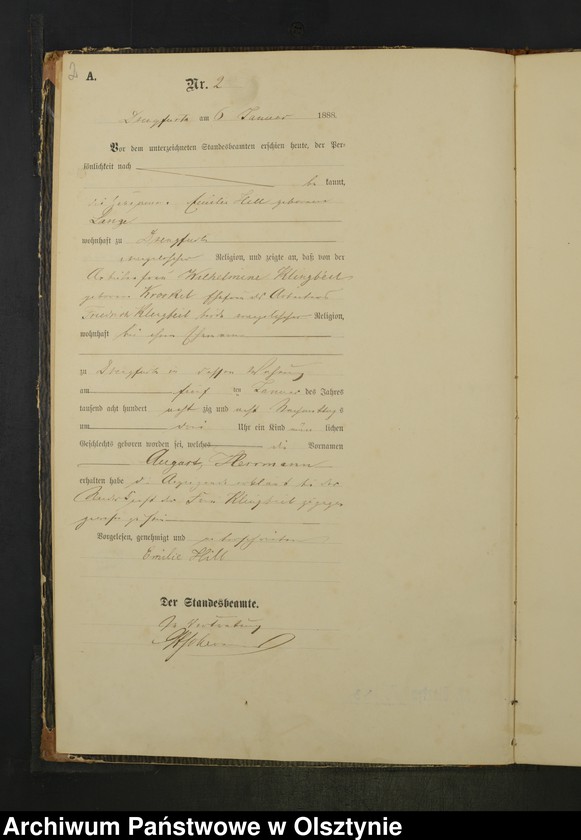 2
A.
Nr. 2
Drengfurth am 6 Januar 1888.
Vor dem unterzeichneten Standesbeamten erschien heute, der Per-
sönlichkeit nach
be kannt,
die Hebamme Emilie Hill geborene
wohnhaft zu Drengfurth
evangelischer Religion, und zeigte an, daß von der
Arbeiterfrau Wilhelmine Klingbeil
geborene Ehefrau des Arbeiters
Friedrich Klingbeil beide evangelischer Religion,
wohnhaft bei ihrem Ehemanne
zu Drengfurth in dessen Wohnung
am fünf ten Januar des Jahres
tausend acht hundert acht zig und acht Nachmittags
um drei Uhr ein Kind männ lichen
Geschlechts geboren worden sei, welches die Vornamen
August, Herrmann
erhalten habe die
Niederkunft der Frau Klingbeil zugegen
gewesen zu sein
Vorgelesen, genehmigt und unterschrieben
Emilie Hill
Der Standesbeamte.
In Vertretung
Archiwum Państwowe w Olsztynie